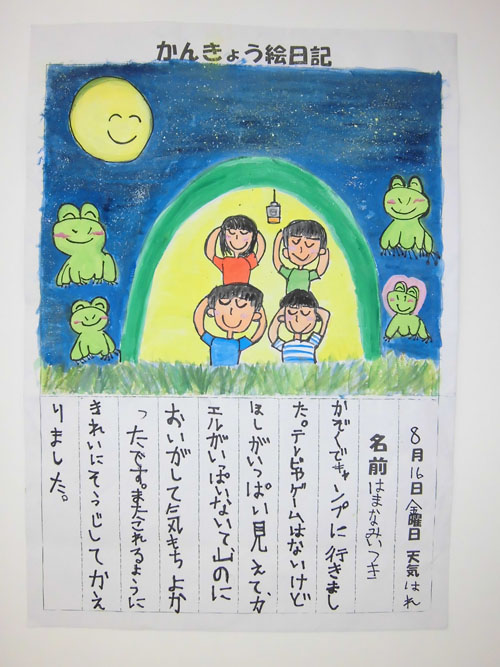 かんきょう絵日記
8月16日 金曜日 天気はれ
名前 はまなみいつき
かぞくでキャンプに行きまし
た。テレビやゲームはないけど
ほしがいっぱい見えて、カ
エルがいっぱいないて、山のに
おいがして気もちよか
ったです。またこれるように
きれいにそうじしてかえ
りました。